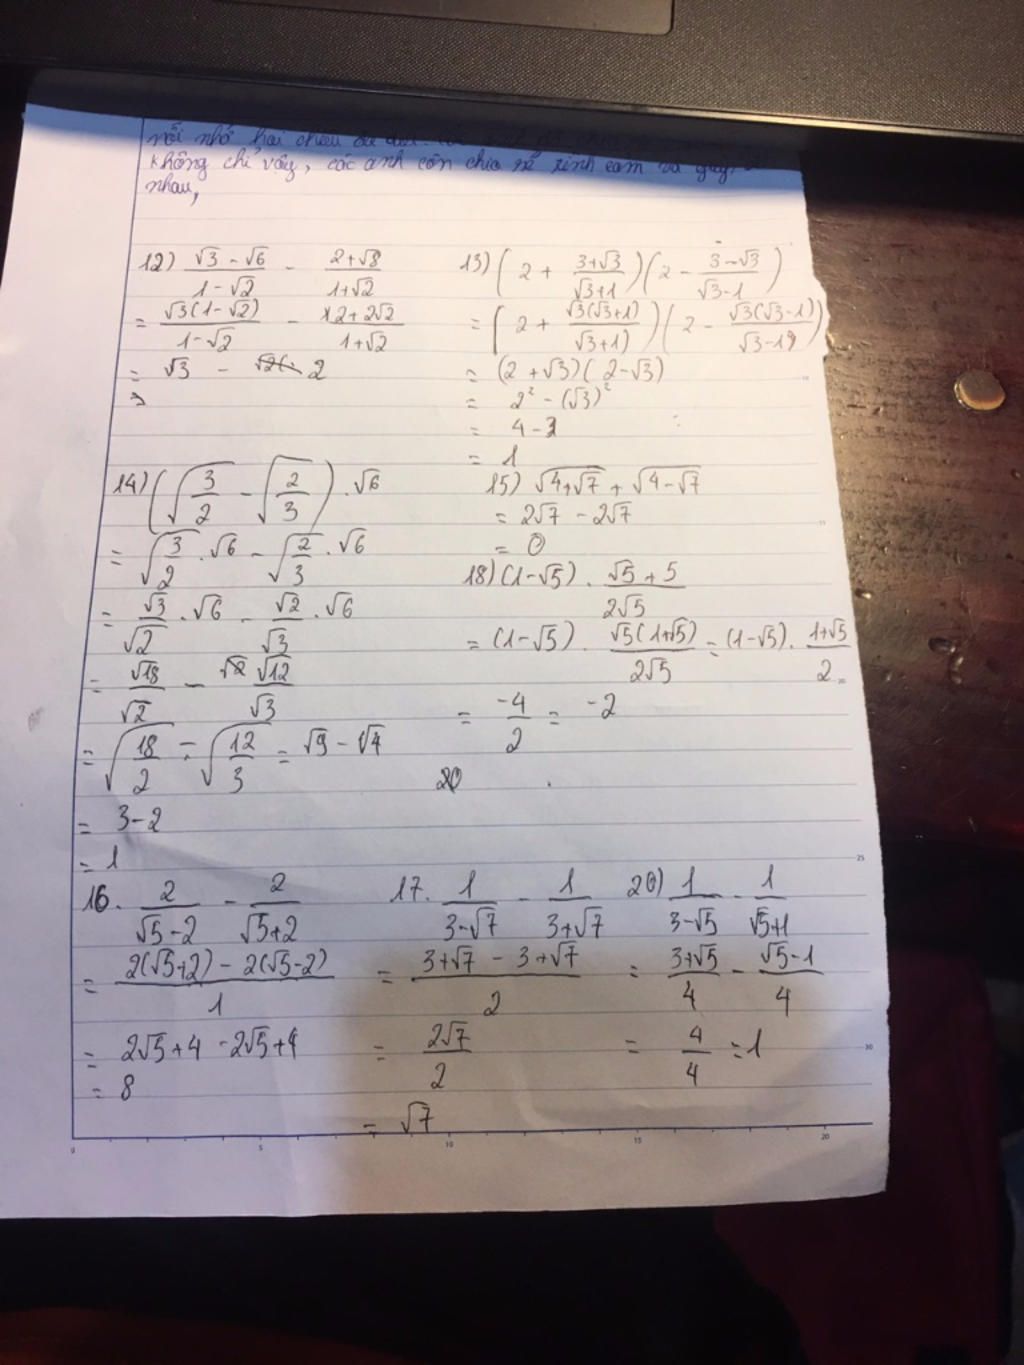 không chỉ vậy, các anh còn chia sẻ
nhau,
12) (√3 - √6)/(1 - √2) - (2 + √8)/(1 + √2)
= √3(1 - √2)/(1 - √2) - (2 + 2√2)/(1 + √2)
= √3 - 2
13) (2 + (3 + √3)/(√3 + 1))(2 - (3 - √3)/(√3 - 1))
= (2 + √3(√3 + 1)/(√3 + 1))(2 - √3(√3 - 1)/(√3 - 1))
= (2 + √3)(2 - √3)
= 2² - (√3)²
= 4 - 3
= 1
14) (√(3/2) - √(2/3)) . √6
= √(3/2) . √6 - √(2/3) . √6
= √3/√2 . √6 - √2/√3 . √6
= √18/√2 - √12/√3
= √(18/2) - √(12/3) = √9 - √4
= 3 - 2
= 1
15) √(4 + √7) + √(4 - √7)
= 2√7 - 2√7
= 0
18) (1 - √5) . (√5 + 5)/(2√5)
= (1 - √5) . √5(1 + √5)/(2√5) = (1 - √5) . (1 + √5)/2
= -4/2 = -2
20
16. 2/(√5 - 2) - 2/(√5 + 2)
= (2(√5 + 2) - 2(√5 - 2))/1
= 2√5 + 4 - 2√5 + 4
= 8
17. 1/(3 - √7) - 1/(3 + √7)
= (3 + √7 - 3 + √7)/2
= 2√7/2
= √7
20) 1/(3 - √5) - 1/(√5 + 1)
= (3 + √5)/4 - (√5 - 1)/4
= 4/4 = 1
0 5 10 15 20
25
30